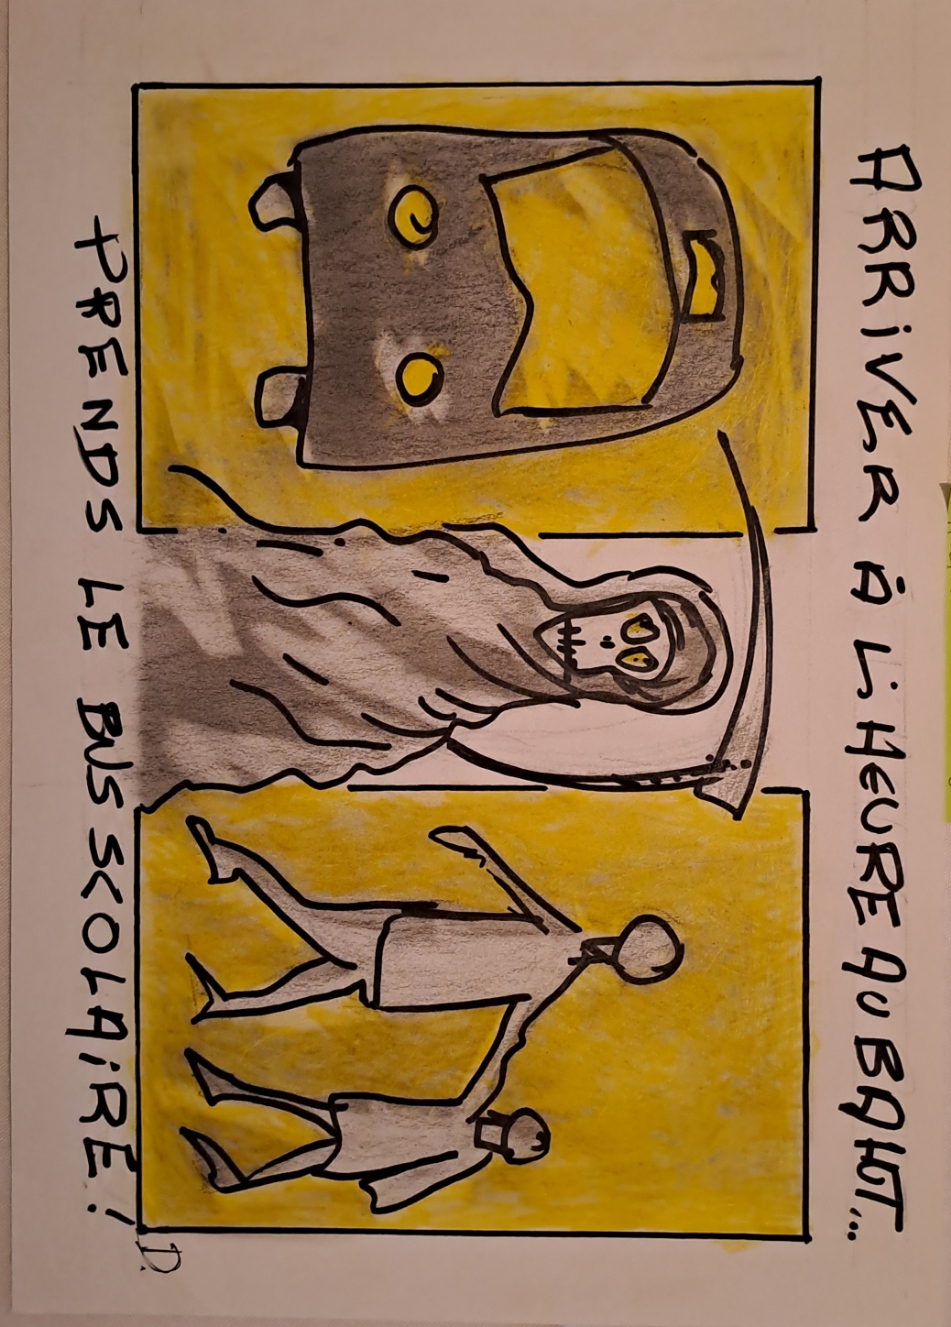 ARRIVER À L'HEURE AU BAHUT...
PRENDS LE BUS SCOLAIRE!
D.